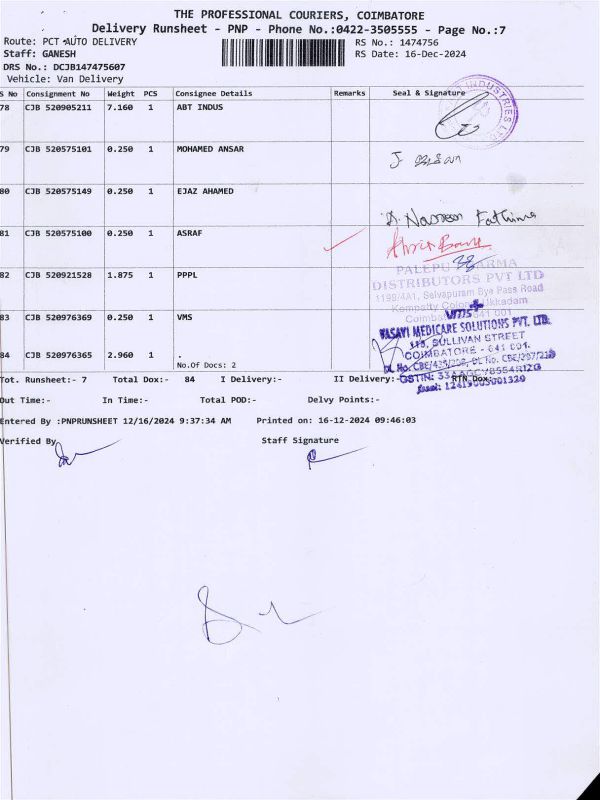 THE PROFESSIONAL COURIERS, COIMBATORE
Delivery Runsheet - PNP - Phone No.:0422-3505555 - Page No.:7
Route: PCT AUTO DELIVERY RS No.: 1474756
Staff: GANESH RS Date: 16-Dec-2024
DRS No.: DCJB147475607
Vehicle: Van Delivery
S No Consignment No Weight PCS Consignee Details Remarks Seal & Signature
78 CJB 520905211 7.160 1 ABT INDUS
INDUSTRIES
79 CJB 520575101 0.250 1 MOHAMED ANSAR
80 CJB 520575149 0.250 1 EJAZ AHAMED
Nasreen Fathima
81 CJB 520575100 0.250 1 ASRAF
82 CJB 520921528 1.875 1 PPPL
PALEPU PHARMA
DISTRIBUTORS PVT LTD
1199/4A1, Selvapuram Bye Pass Road
83 CJB 520976369 0.250 1 VMS
vms
VASAVI MEDICARE SOLUTIONS PVT. LTD.
SULLIVAN STREET
COIMBATORE - 641 001.
84 CJB 520976365 2.960 1 .
No.Of Docs: 2
Tot. Runsheet:- 7 Total Dox:- 84 I Delivery:- II Delivery:- RTN Dox:-
Out Time:- In Time:- Total POD:- Delvy Points:-
Entered By :PNPRUNSHEET 12/16/2024 9:37:34 AM Printed on: 16-12-2024 09:46:03
Verified By Staff Signature